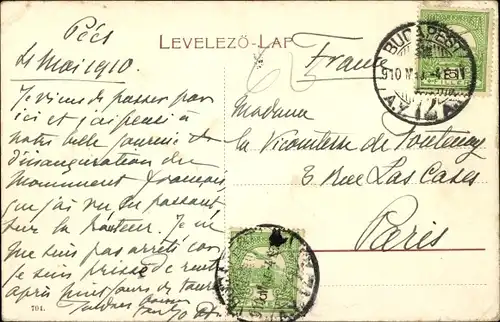 LEVELEZŐ-LAP
Pécs
4 Mai 1910.
Je viens de passer par
ici et j'ai pensé à
notre belle journée de
l'inauguration du
Monument français,
que j'ai vu en passant
sur la hauteur. Je ne
me suis pas arrêté car
je suis pressé de
après huit jours de
France
Madame
la Vicomtesse de Fontenay
3 Rue Las Cases
Paris
BUDAPEST
910
12
5
701.